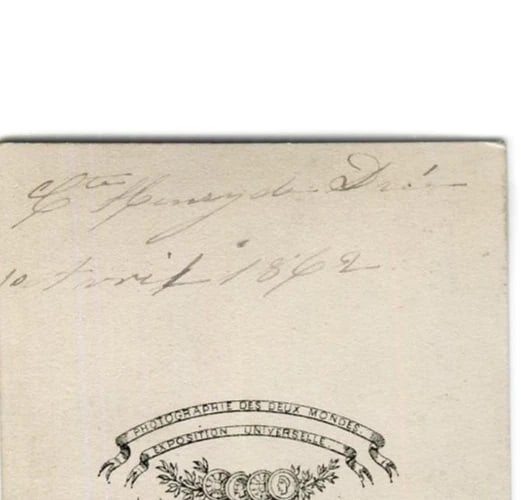 Cte Henry de Dré
10 Avril 1862
PHOTOGRAPHIE DES DEUX MONDES
EXPOSITION UNIVERSELLE